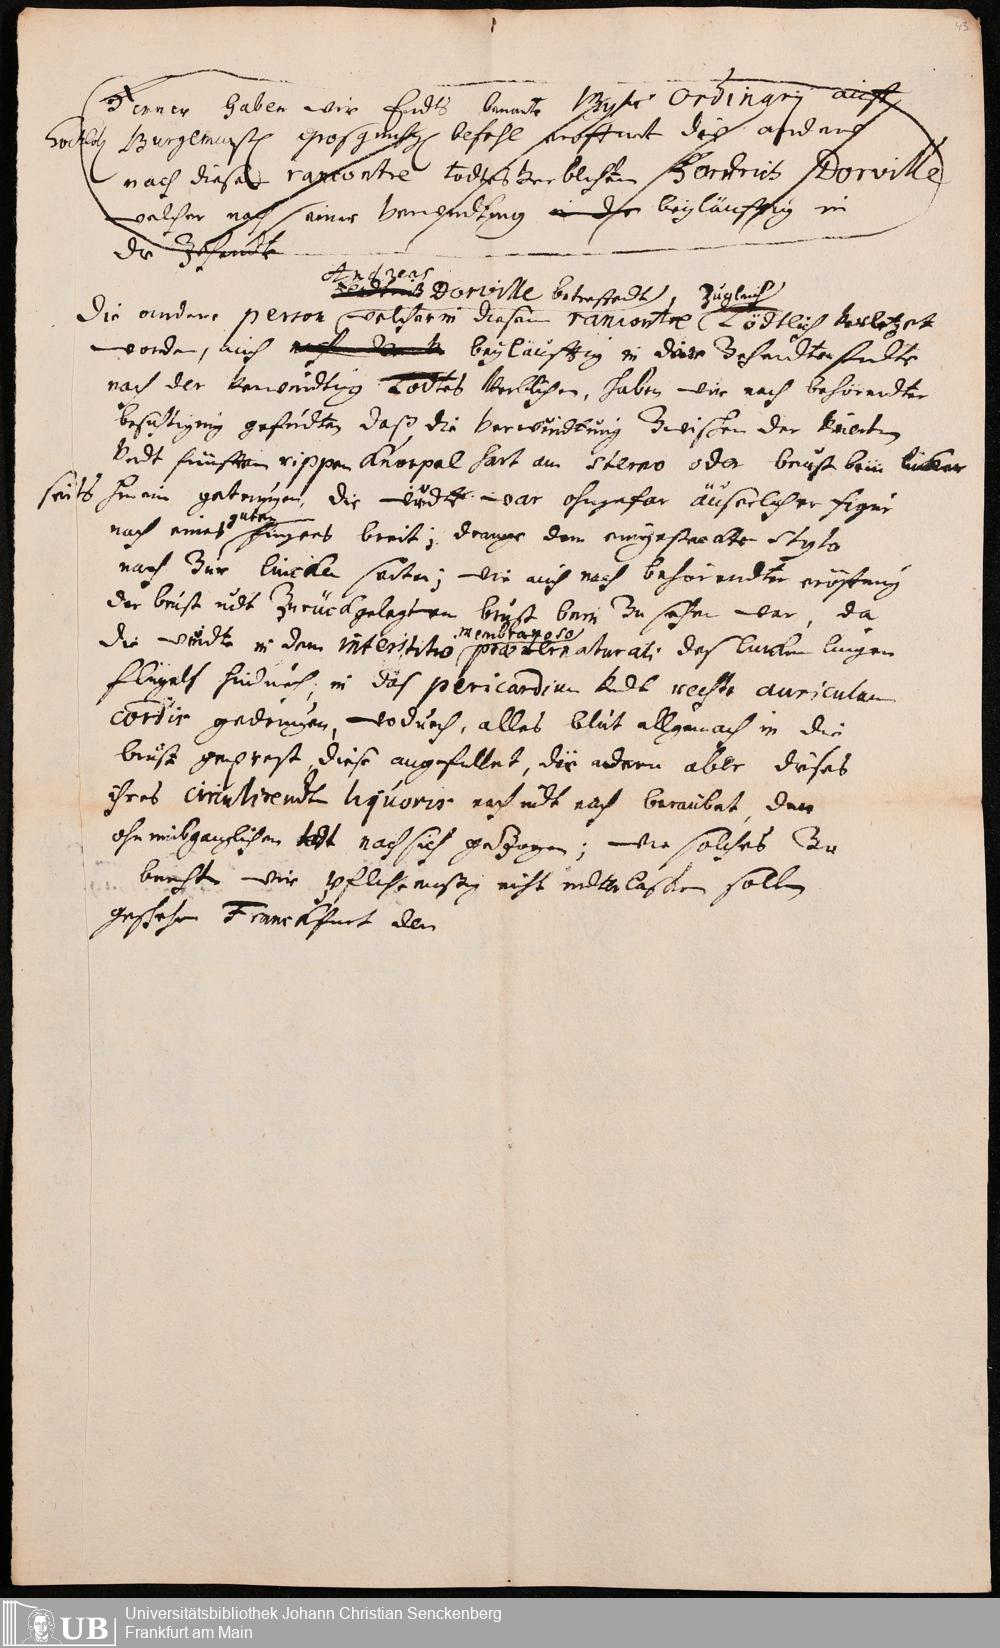 43
Ferner haben wir Endts benante Physici Ordinarij auff
Hochlöbl Burgemeist. grosgünst. befehl eröffnet die andere
nach diesem rancontre todtes verblichen Dorville
welcher nach seiner Verwundung in der beyläuffig in
der Zehende
Andreas
Dorville betreffendt, zugleich
Die andere person welcher in diesem rancontre Tödtlich verletzet
worden, auch beyläuffig in der Zehendten stundte
nach der verwundtung Todtes Verblichen, haben wir nach behörendter
besichtigung gefundten daß die Verwundtung Zwischen der vierten
Undt fünfften rippen Knorpel hart am sterno oder brust bein lincker
seits hinein getrungen, die wundte war ohngefar äuserlicher figur
nach eines guten fingers breit; drange dem eingesteckten stylo
nach Zur lincken seiten; wie auch nach behörendter eröffnung
der brust undt Zurückgelegten brust bein Zu sehen war, da
die wundte in dem interstitio membranoso præternaturali des lincken lungen
flügels hindurch, in das pericardium Undt rechte auriculam
cordis gedrungen, wodurch, alles blut allgemach in die
brust geprest, diese angefullet, die adern aber dieses
ihres circulirendten liquoris nach undt nach beraubet, den
ohnumbgänglichen todt nach sich geZogen; wie solches Zu
berichten wir pflichtmäßig nicht undterlassen sollen
geschehen Franckfurt den
Universitätsbibliothek Johann Christian Senckenberg
Frankfurt am Main
UB